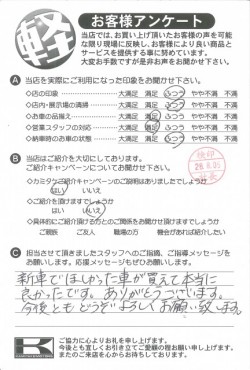 軽
お客様アンケート
当店では、お買い上げ頂いたお客様の声を可能
な限り現場に反映し、お客様により良い商品と
サービスを提供する事に努めています。
大変お手数ですが是非お声をお聞かせ下さい。
A 当店を実際にご利用になった印象をお聞かせ下さい。
◇店の印象 大満足 満足 ふつう やや不満 不満
◇店内・展示場の清掃 大満足 満足 ふつう やや不満 不満
◇お車の品揃え 大満足 満足 ふつう やや不満 不満
◇営業スタッフの対応 大満足 満足 ふつう やや不満 不満
◇納車時のお車の状態 大満足 満足 ふつう やや不満 不満
B 当店はご紹介を大切にしております。
ご紹介キャンペーンについてお聞かせ下さい。
◇カミタケご紹介キャンペーンの説明はありましたでしょうか
はい いいえ
◇ご紹介を頂けますでしょうか
はい いいえ
◇具体的にご紹介頂ける方とのご関係をお聞かせ頂けますでしょうか
ご親族 ご友人 職場の方 機会があれば紹介したい
C 担当させて頂きましたスタッフへのご指摘、ご指導メッセージを
お願いします。応援メッセージもぜひお願いします。
新車でほしかった車が買えて本当に
良かったです。ありがとうございます。
今後ともどうぞよろしくお願い致します。
ご協力に心よりお礼を申し上げます。
今後とも宜しくお引き立てご愛顧の程お願い申し上げます。
またのご来店を心からお待ちしております。